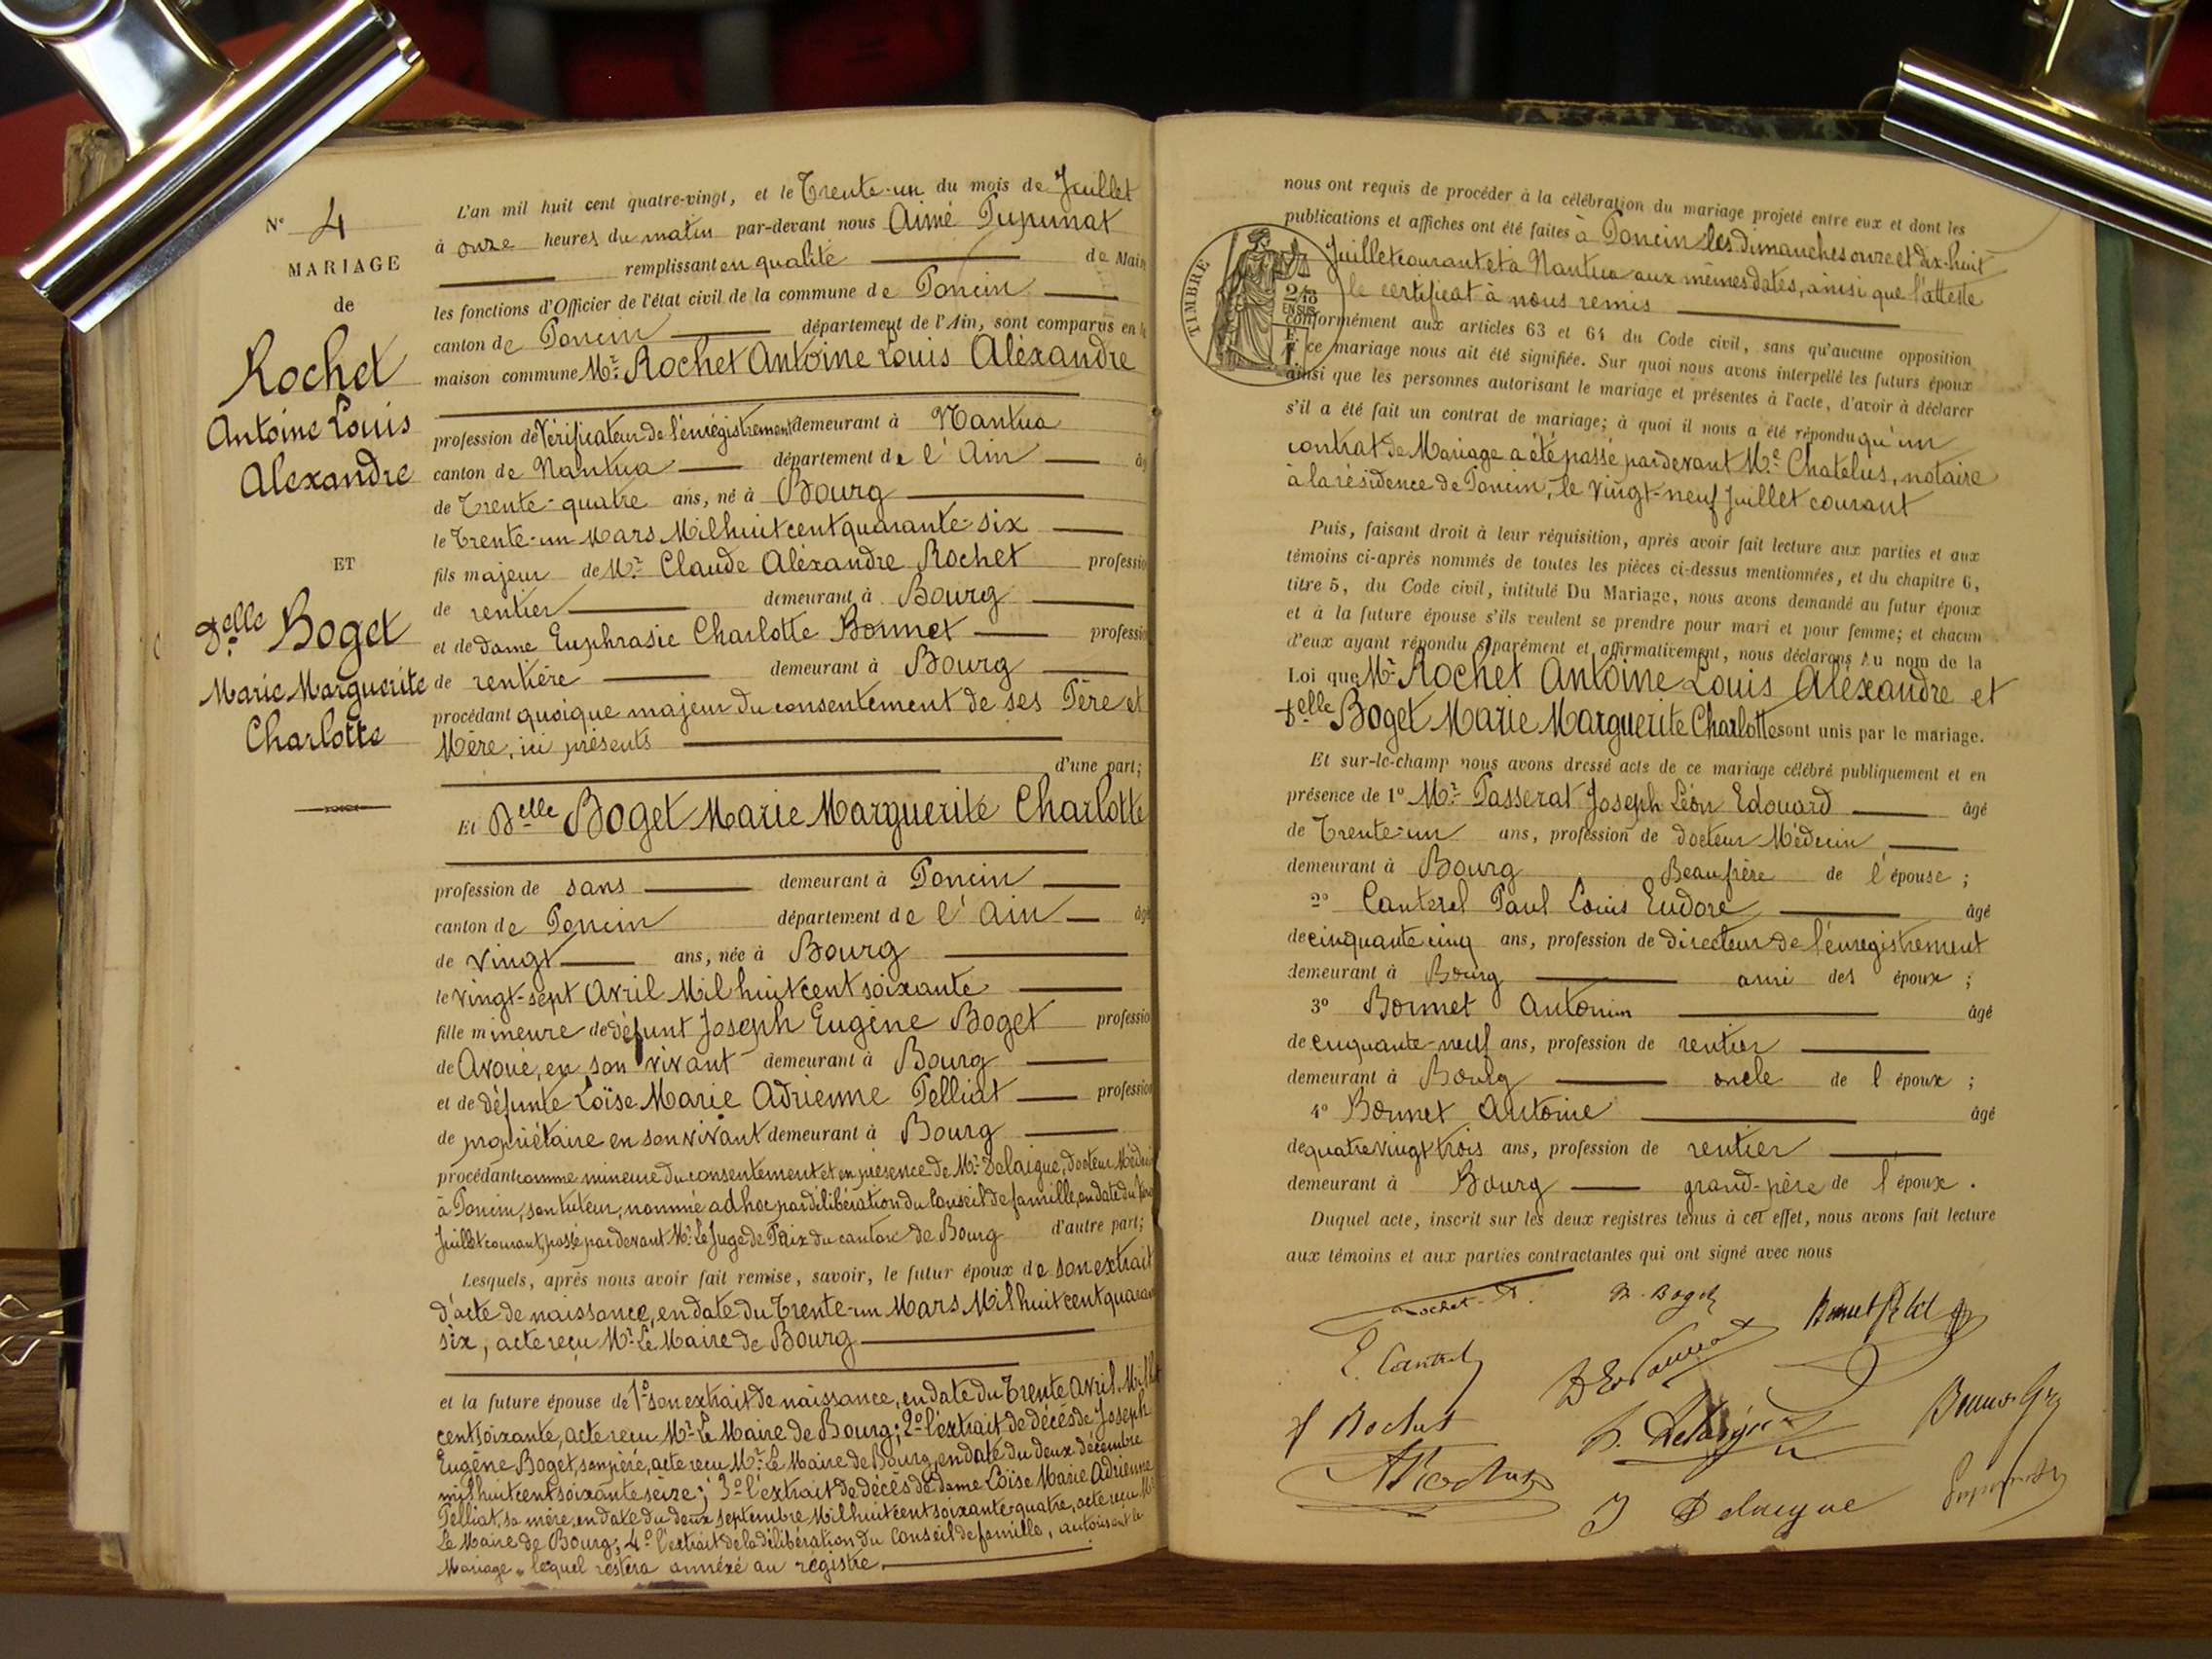 N° 4
MARIAGE
de
Rochet
Antoine Louis
Alexandre
ET
Delle Boget
Marie Marguerite
Charlotte
L'an mil huit cent quatre-vingt, et le Trente-un du mois de Juillet
à onze heures du matin par-devant nous Aimé Pupunat
remplissant en qualité de Maire
les fonctions d'Officier de l'état civil de la commune de Poncin
canton de Poncin département de l'Ain, sont comparus en la
maison commune Mr. Rochet Antoine Louis Aléxandre
profession de Vérificateur de l'enrégistrement demeurant à Nantua
canton de Nantua département de l'Ain âgé
de Trente-quatre ans, né à Bourg
le Trente-un Mars Mil huit cent quarante-six
fils majeur de Mr. Claude Aléxandre Rochet profession
de rentier demeurant à Bourg
et de dame Euphrasie Charlotte Bonnet profession
de rentière demeurant à Bourg
procédant quoique majeur du consentement de ses Père et
Mère, ici présents
d'une part;
Et Delle Boget Marie Marguerite Charlotte
profession de sans demeurant à Poncin
canton de Poncin département de l'Ain âgée
de vingt ans, née à Bourg
le vingt-sept Avril Mil huit cent soixante
fille mineure de défunt Joseph Eugène Boget profession
de Avoué, en son vivant demeurant à Bourg
et de défunte Loïse Marie Adrienne Pelliat profession
de propriétaire en son vivant demeurant à Bourg
procédant comme mineure du consentement et en présence de Mr. Delaigue, docteur Médecin
à Poncin, son tuteur, nommé ad hoc par délibération du Conseil de famille, en date du
Juillet courant, passé par devant Mr. Le Juge de Paix du canton de Bourg d'autre part;
Lesquels, après nous avoir fait remise, savoir, le futur époux de son extrait
d'acte de naissance, en date du Trente-un Mars Mil huit cent quarante
six, acte reçu Mr. Le Maire de Bourg
et la future épouse de 1° son extrait de naissance, en date du Trente Avril Mil huit
cent soixante, acte reçu Mr. Le Maire de Bourg; 2° l'extrait de décès de Joseph
Eugène Boget, son père, acte reçu Mr. Le Maire de Bourg, en date du deux décembre
mil huit cent soixante seize; 3° l'extrait de décès de dame Loïse Marie Adrienne
Pelliat, sa mère, en date du deux septembre Mil huit cent soixante-quatre, acte reçu Mr.
Le Maire de Bourg; 4° l'extrait de la délibération du Conseil de famille, autorisant le
Mariage, lequel restera annéxé au régistre.
nous ont requis de procéder à la célébration du mariage projeté entre eux et dont les
publications et affiches ont été faites à Poncin les dimanches onze et dix-huit
Juillet courant et à Nantua aux mêmes dates, ainsi que l'atteste
le certificat à nous remis
TIMBRE
2/10
EN SUS
conformément aux articles 63 et 64 du Code civil, sans qu'aucune opposition
à ce mariage nous ait été signifiée. Sur quoi nous avons interpellé les futurs époux
ainsi que les personnes autorisant le mariage et présentes à l'acte, d'avoir à déclarer
s'il a été fait un contrat de mariage; à quoi il nous a été répondu qu'un
contrat de Mariage a été passé par devant Me. Chatelus, notaire
à la résidence de Poncin, le vingt-neuf Juillet courant
Puis, faisant droit à leur réquisition, après avoir fait lecture aux parties et aux
témoins ci-après nommés de toutes les pièces ci-dessus mentionnées, et du chapitre 6,
titre 5, du Code civil, intitulé Du Mariage, nous avons demandé au futur époux
et à la future épouse s'ils veulent se prendre pour mari et pour femme; et chacun
d'eux ayant répondu séparément et affirmativement, nous déclarons au nom de la
Loi que Mr. Rochet Antoine Louis Aléxandre et
Delle Boget Marie Marguerite Charlotte sont unis par le mariage.
Et sur-le-champ nous avons dressé acte de ce mariage célébré publiquement et en
présence de 1° Mr. Passerat Joseph Léon Edouard âgé
de Trente-un ans, profession de docteur Médecin
demeurant à Bourg Beaufrère de l'épouse;
2° Canterel Paul Louis Eudore âgé
de cinquante cinq ans, profession de directeur de l'enregistrement
demeurant à Bourg ami des époux;
3° Bonnet Antonin âgé
de cinquante-neuf ans, profession de rentier
demeurant à Bourg oncle de l'époux;
4° Bonnet Antoine âgé
de quatre vingt trois ans, profession de rentier
demeurant à Bourg grand-père de l'époux.
Duquel acte, inscrit sur les deux registres tenus à cet effet, nous avons fait lecture
aux témoins et aux parties contractantes qui ont signé avec nous
Rochet. A.
M. Boget
E. Canterel
Rochet
A Rochet
D. Delaigue
J Delaigue